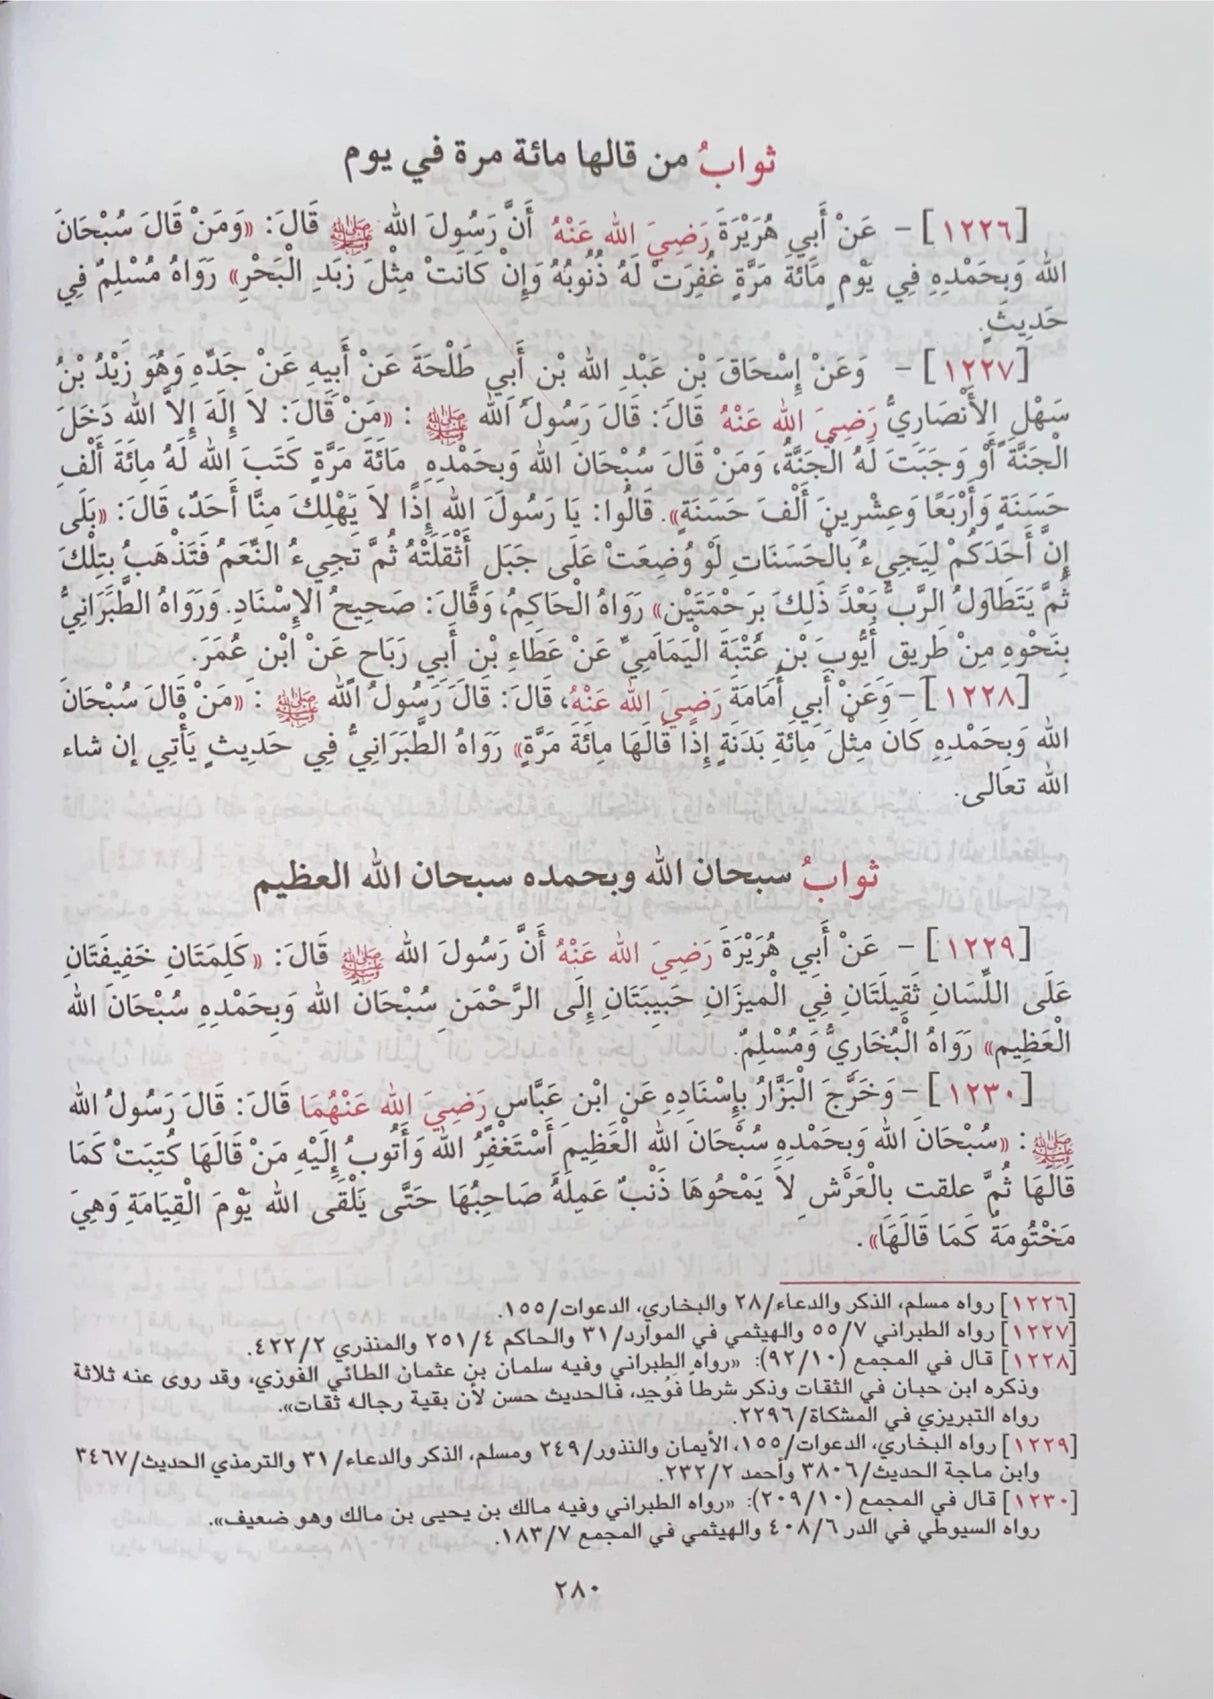 ثوابُ من قالها مائة مرة في يوم
[١٢٢٦] - عَنْ أَبِي هُرَيْرَةَ رَضِيَ الله عَنْهُ أَنَّ رَسُولَ الله ﷺ قَالَ: «وَمَنْ قَالَ سُبْحَانَ
الله وَبِحَمْدِهِ فِي يَوْمٍ مَائَةَ مَرَّةٍ غُفِرَتْ لَهُ ذُنُوبُهُ وَإِنْ كَانَتْ مِثْلَ زَبَدِ الْبَحْرِ» رَوَاهُ مُسْلِمٌ فِي
حَدِيثٍ.
[١٢٢٧] - وَعَنْ إِسْحَاقَ بْنِ عَبْدِ الله بْنِ أَبِي طَلْحَةَ عَنْ أَبِيهِ عَنْ جَدِّهِ وَهُوَ زَيْدُ بْنُ
سَهْلٍ الأَنْصَارِيُّ رَضِيَ الله عَنْهُ قَالَ: قَالَ رَسُولُ الله ﷺ : «مَنْ قَالَ: لاَ إِلَهَ إِلاَّ الله دَخَلَ
الْجَنَّةَ أَوْ وَجَبَتَ لَهُ الْجَنَّةُ، وَمَنْ قَالَ سُبْحَانَ الله وَبِحَمْدِهِ مَائَةَ مَرَّةٍ كَتَبَ الله لَهُ مِائَةَ أَلْفِ
حَسَنَةٍ وَأَرْبَعًا وَعِشْرِينَ أَلْفَ حَسَنَةٍ». قَالُوا: يَا رَسُولَ الله إِذًا لاَ يَهْلِكَ مِنَّا أَحَدٌ، قَالَ: «بَلَى
إِنَّ أَحَدَكُمْ لِيَجِيءُ بِالْحَسَنَاتِ لَوْ وُضِعَتْ عَلَى جَبَلٍ أَثْقَلَتْهُ ثُمَّ تَجِيءُ النِّعَمُ فَتَذْهَبُ بِتِلْكَ
ثُمَّ يَتَطَاوَلُ الرَّبُّ بَعْدَ ذَلِكَ بِرَحْمَتَيْنِ» رَوَاهُ الْحَاكِمُ، وَقَالَ: صَحِيحُ الإِسْنَادِ. وَرَوَاهُ الطَّبَرَانِيُّ
بِنَحْوِهِ مِنْ طَرِيقِ أَيُّوبَ بْنِ عُتْبَةَ الْيَمَامِيِّ عَنْ عَطَاءِ بْنِ أَبِي رَبَاحٍ عَنْ ابْنِ عُمَرَ.
[١٢٢٨] - وَعَنْ أَبِي أُمَامَةَ رَضِيَ الله عَنْهُ، قَالَ: قَالَ رَسُولُ الله ﷺ : «مَنْ قَالَ سُبْحَانَ
الله وَبِحَمْدِهِ كَانَ مِثْلَ مِائَةِ بَدَنَةٍ إِذَا قَالَهَا مِائَةَ مَرَّةٍ» رَوَاهُ الطَّبَرَانِيُّ فِي حَدِيثٍ يَأْتِي إن شاء
الله تعَالى.
ثوابُ سبحان الله وبحمده سبحان الله العظيم
[١٢٢٩] - عَنْ أَبِي هُرَيْرَةَ رَضِيَ الله عَنْهُ أَنَّ رَسُولَ الله ﷺ قَالَ: «كَلِمَتَانِ خَفِيفَتَانِ
عَلَى اللِّسَانِ ثَقِيلَتَانِ فِي الْمِيزَانِ حَبِيبَتَانِ إِلَى الرَّحْمَنِ سُبْحَانَ الله وَبِحَمْدِهِ سُبْحَانَ الله
الْعَظِيمِ» رَوَاهُ الْبُخَارِيُّ وَمُسْلِمٌ.
[١٢٣٠] - وَخَرَّجَ الْبَزَّارُ بِإِسْنَادِهِ عَنِ ابْنِ عَبَّاسٍ رَضِيَ الله عَنْهُمَا قَالَ: قَالَ رَسُولُ الله
ﷺ : «سُبْحَانَ الله وَبِحَمْدِهِ سُبْحَانَ الله الْعَظِيمَ أَسْتَغْفِرُ الله وَأَتُوبُ إِلَيْهِ مَنْ قَالَهَا كُتِبَتْ كَمَا
قَالَهَا ثُمَّ علقت بِالْعَرْشِ لاَ يَمْحُوهَا ذَنْبٌ عَمِلَهُ صَاحِبُهَا حَتَّى يَلْقَى الله يَوْمَ الْقِيَامَةِ وَهِيَ
مَخْتُومَةٌ كَمَا قَالَهَا».
[١٢٢٦] رواه مسلم، الذكر والدعاء/٢٨ والبخاري، الدعوات/١٥٥.
[١٢٢٧] رواه الطبراني ٥٥/٧ والهيثمي في الموارد/٣١ والحاكم ٢٥١/٤ والمنذري ٤٢٢/٢.
[١٢٢٨] قال في المجمع (٩٢/١٠): «رواه الطبراني وفيه سلمان بن عثمان الطائي الفوزي، وقد روى عنه ثلاثة
وذكره ابن حبان في الثقات وذكر شرطاً فَوُجِد، فالحديث حسن لأن بقية رجاله ثقات».
رواه التبريزي في المشكاة/٢٢٩٦.
[١٢٢٩] رواه البخاري، الدعوات/١٥٥، الأيمان والنذور/٢٤٩ ومسلم، الذكر والدعاء/٣١ والترمذي الحديث/٣٤٦٧
وابن ماجة الحديث/٣٨٠٦ وأحمد ٢٣٢/٢.
[١٢٣٠] قال في المجمع (٢٠٩/١٠): «رواه الطبراني وفيه مالك بن يحيى بن مالك وهو ضعيف».
رواه السيوطي في الدر ٤٠٨/٦ والهيثمي في المجمع ١٨٣/٧.
٢٨٠